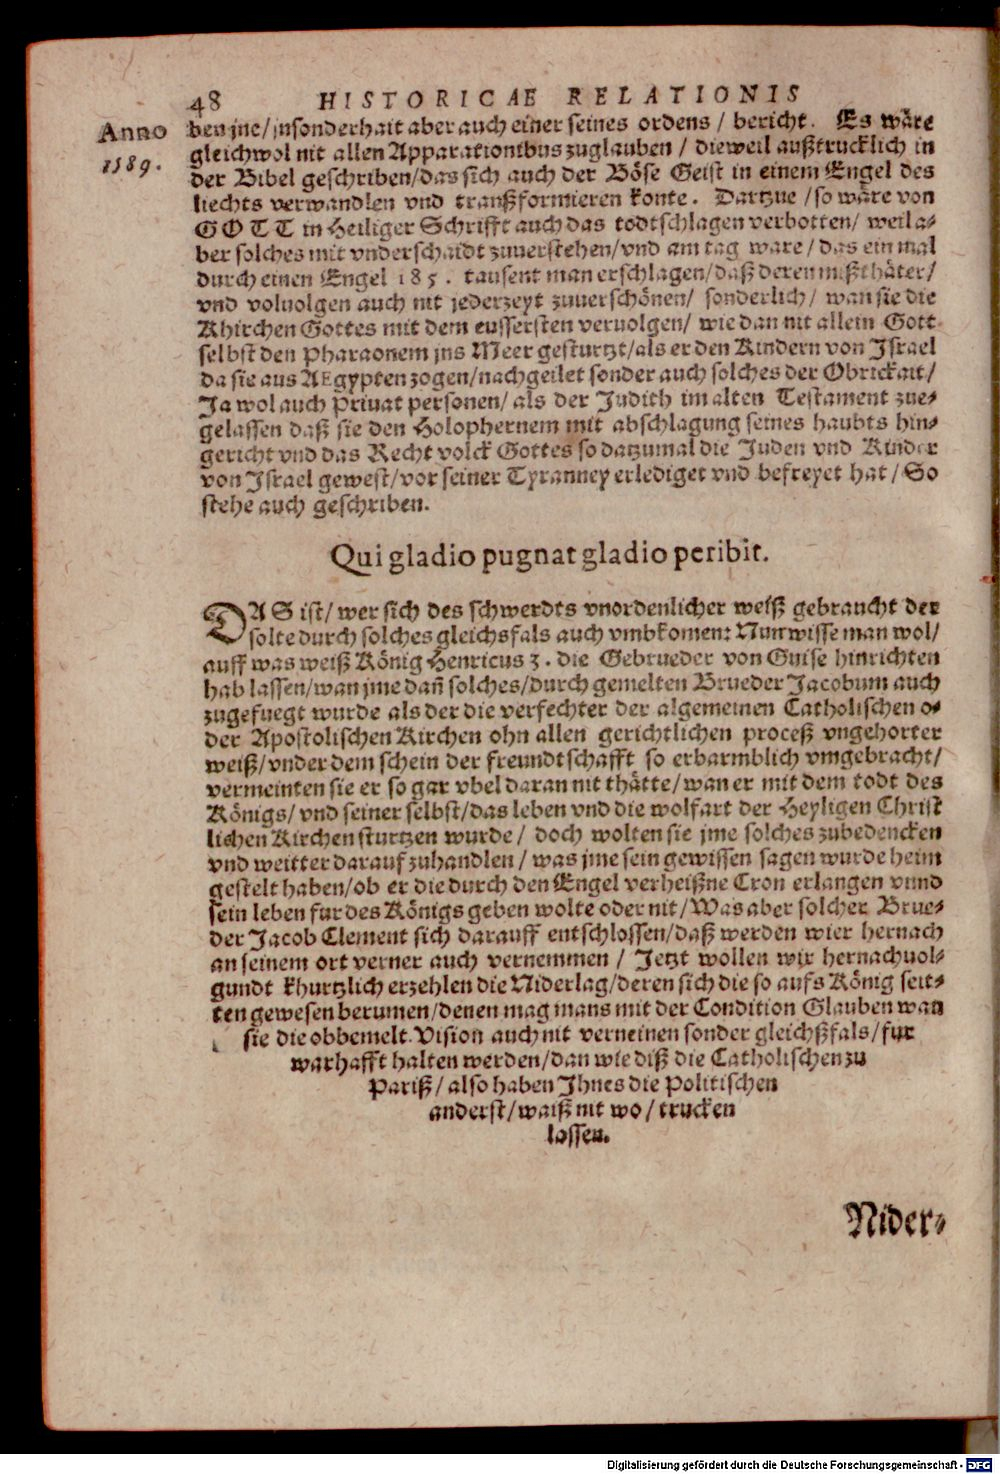 48 HISTORICAE RELATIONIS
Anno
1589.
ben jne/ jnsonderhait aber auch einer seines ordens / bericht. Es wäre
gleichwol nit allen Apparationibus zuglauben / dieweil außtrucklich in
der Bibel geschriben/das sich auch der Böse Geist in einem Engel des
liechts verwandlen vnd transsformieren konte. Dartzue / so wäre von
GOTT in Heiliger Schrifft auch das todtschlagen verbotten/ weil a-
ber solches mit vnderschaidt zuuerstehen/vnd am tag ware / das ein mal
durch einen Engel 185. tausent man erschlagen/daß deren mißthäter/
vnd voluolgen auch nit jederzeyt zuuerschönen/ sonderlich/ wan sie die
Khirchen Gottes mit dem eussersten veruolgen/ wie dan nit allein Gott
selbst den Pharaonem jns Meer gesturtzt/als er den Kindern von Israel
da sie aus AEgypten zogen/nachgeilet sonder auch solches der Obrickait/
Ja wol auch Priuat personen/ als der Judith im alten Testament zue-
gelassen daß sie den Holophernem mit abschlagung seines haubts hin-
gericht vnd das Recht volck Gottes so datzumal die Juden vnd Kinder
von Israel gewest/vor seiner Tyranney erlediget vnd befreyet hat / So
stehe auch geschriben.
Qui gladio pugnat gladio peribit.
DAS ist/ wer sich des schwerdts vnordenlicher weiß gebraucht der
solte durch solches gleichsfals auch vmbkomen: Nun wisse man wol/
auff was weiß König Henricus 3. die Gebrueder von Guise hinrichten
hab lassen/wan jme dañ solches/durch gemelten Brueder Jacobum auch
zugefuegt wurde als der die verfechter der algemeinen Catholischen o-
der Apostolischen Kirchen ohn allen gerichtlichen proceß vngehorter
weiß/vnder dem schein der freundtschafft so erbarmblich vmgebracht/
vermeinten sie er so gar vbel daran nit thätte/wan er mit dem todt des
Königs/ vnd seiner selbst/das leben vnd die wolfart der Heyligen Christ
lichen Kirchen sturtzen wurde / doch wolten sie jme solches zubedencken
vnd weitter darauf zuhandlen / was jme sein gewissen sagen wurde heim
gestelt haben/ob er die durch den Engel verheißne Cron erlangen vnnd
sein leben fur des Königs geben wolte oder nit/Was aber solcher Brue-
der Jacob Clement sich darauff entschlossen/daß werden wier hernach
an seinem ort verner auch vernemmen / Jetzt wollen wir hernachuol-
gundt khurtzlich erzehlen die Niderlag/deren sich die so aufs König seit-
ten gewesen berumen/denen mag mans mit der Condition Glauben wan
sie die obbemelt. Vision auch nit verneinen sonder gleichßfals/fur
warhafft halten werden/dan wie diß die Catholischen zu
Pariß/ also haben Jhnes die Politischen
anderst/waiß nit wo/ trucken
lossen.
Nider-
Digitalisierung gefördert durch die Deutsche Forschungsgemeinschaft - DFG